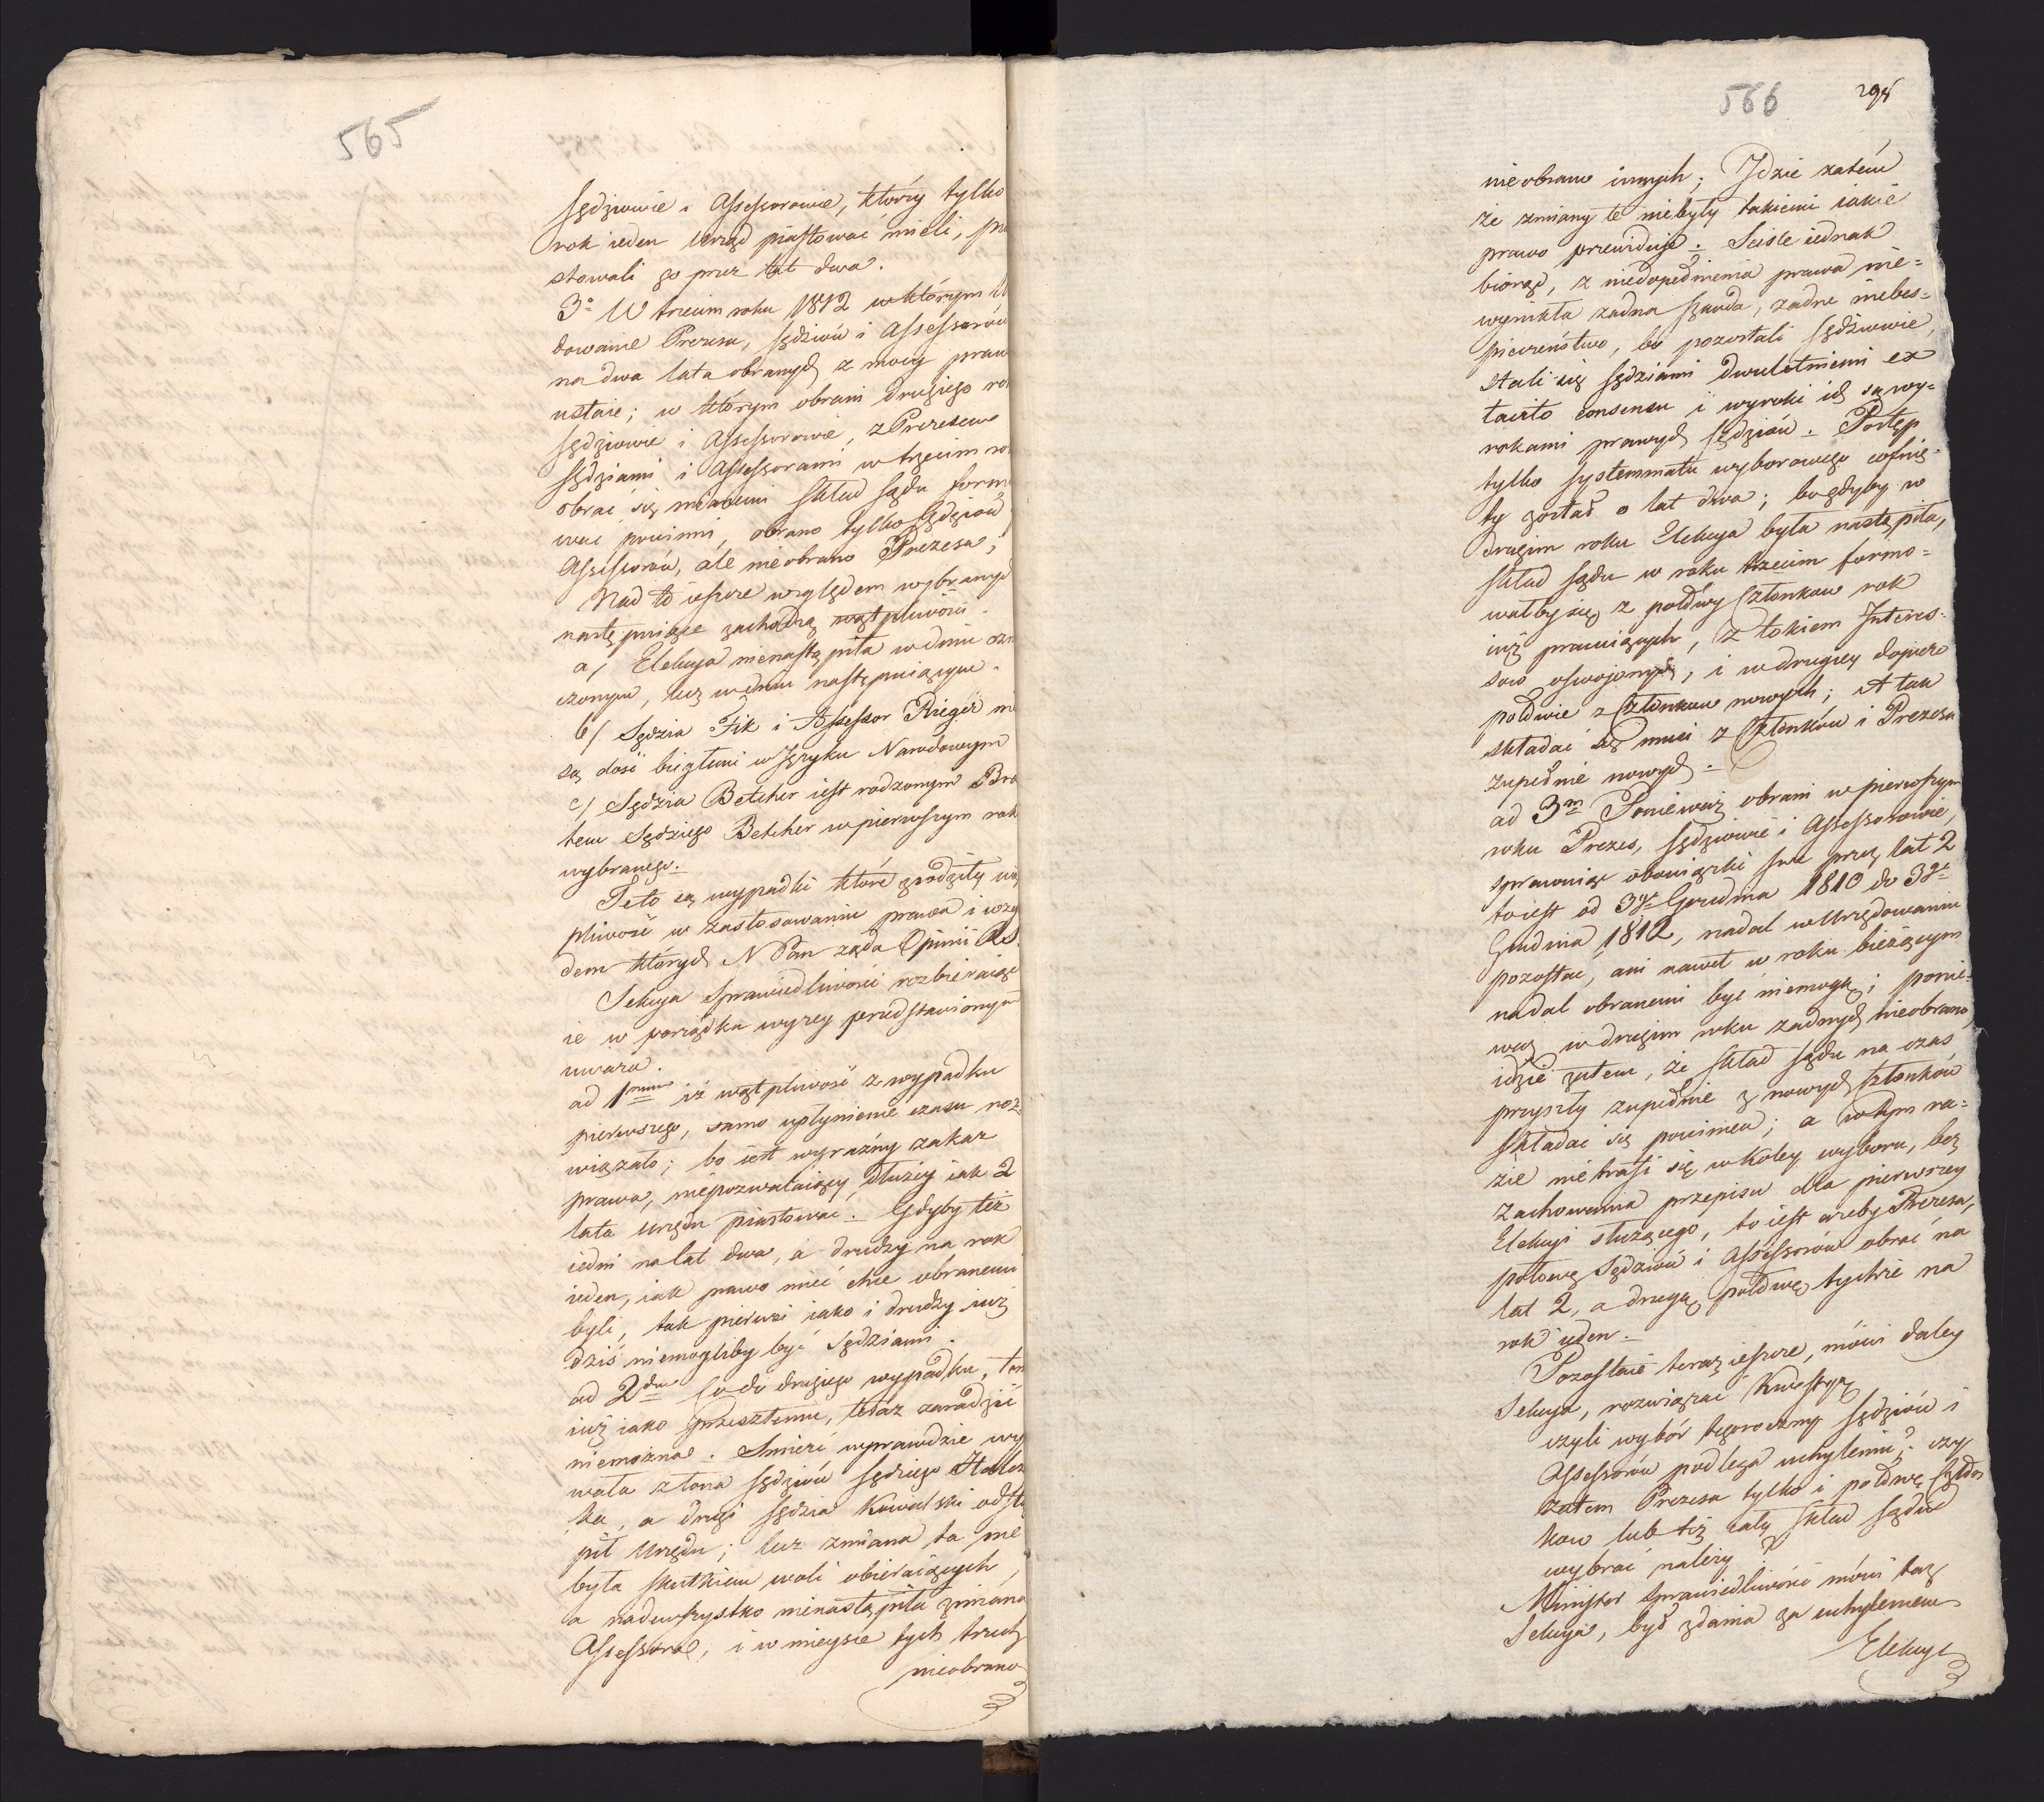 565
Sędziowie i Assessorowie, którzy tylko
rok ieden Urząd piastować mieli, pia
stowali go przez lat dwa.
3° W trzecim roku 1812 w którym
dowanie Prezesa, Sędziów i Assessorów
na dwa lata obranych z mocy praw
ustaie; w którym obrani drugiego ro
Sędziowie i Assessorowie, z Prezesem
Sędziami i Assessorami w trzecim ro
obrać się mianemi skład Sądu form
wać powinni, obrano tylko Sędziów
Assessorów, ale nieobrano Prezesa;
Nad to ieszcze względem wybranych
następuiące zachodzą wątpliwości.
a/ Elekcya nienastąpiła w dniu ozn
czonym, lecz w dniu następuiącym.
b/ Sędzia Fik i Assessor Rieger ni
są dość biegłemi w Języku Narodowym
c/ Sędzia Betcher iest rodzonym Bra
tem Sędziego Betcher w pierwszym rok
wybranego.
Te to są wypadki które zrodziły wąt
pliwość w zastosowaniu prawa i wzgl
dem których N Pan żąda Opinii R.S.
Sekcya Sprawiedliwości rozbieraiąc
ie w porządku wyżey przedstawionym
uważa.
ad 1mum iż wątpliwość z wypadku
pierwszego, samo upłynienie czasu roz=
wiązało; bo iest wyraźny zakaz
prawa, niepozwalaiący dłużey iak 2
lata urzędu piastować. Gdyby też
iedni na lat dwa, a drudzy na rok
ieden, iak prawo mieć chce obranemi
byli, tak pierwsi iako i drudzy iuż
dziś niemogliby być Sędziami.
ad 2dum Co do drugiego wypadku, tem
iuż iako przeszłemu, teraz zaradzić
niemożna. Śmierć wprawdzie wy
wała z łona Sędziów Sędziego
ka, a drugi Sędzia Kowalski odstą
pił Urzędu; lecz zmiana ta nie
była skutkiem woli obieraiących,
a nadewszystko nienastąpiła zmiana
Assessora, i w mieysce tych trzech
nieobrano
566
298
nieobrano innych; Idzie zatém
że zmiany te niebyły takiemi iakie
prawo przewiduie. Sciśle iednak
biorąc, z niedopełnienia prawa nie=
wynikła żadna szkoda, żadne niebes=
pieczeństwo, bo pozostali Sędziowie,
stali się Sędziami dwuletniemi ex
tacito consensu i wyroki ich są wy=
rokami prawych Sędziów. Postęp
tylko systemmatu wyborowego cofnię=
ty został o lat dwa; bo gdyby w
drugim roku Elekcya była nastąpiła,
skład Sądu w roku trzecim formo=
wałby się z połowy Członków rok
iuż pracuiących, z tokiem Interes=
sow oswojonych, i w drugiey dopiero
połowie z Członków nowych; A tak
składać się musi z Członków i Prezesa
zupełnie nowych.
ad 3m Ponieważ obrani w pierwszym
roku Prezes, Sędziowie i Assessorowie,
sprawuiąc obowiązki swe przez lat 2
to iest od 3go Grudnia 1810 do 3go
Grudnia 1812, nadal w Urzędowaniu
pozostać, ani nawet w roku bieżącym
nadal obranemi być niemogą; ponie=
waż w drugim roku żadnych nieobrano,
idzie zatem, że skład Sądu na czas
przyszły zupełnie z nowych Członków
składać się powinien; a w tym ra=
zie nie trafi się w koley wyboru, bez
zachowania przepisu dla pierwszey
Elekcyi służącego, to iest ażeby Prezesa,
połowę Sędziów i Assessorów obrać na
lat 2, a drugą połowę tychże na
rok ieden.
Pozostaie teraz ieszcze, mówi daley
Sekcya, rozwiązać kwestyą
czyli wybór tegoroczny Sędziów i
Assessorów podlega uchyleniu?; czy
zatem Prezesa tylko i połowę Człon
kow lub też cały skład Sądu
wybrać należy?
Minister Sprawiedliwości mówi taż
Sekcya, był zdania za uchyleniem
Elekcyi